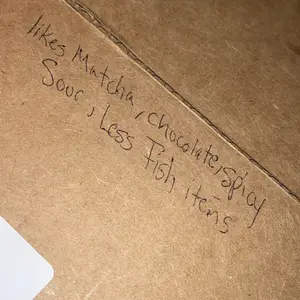 likes Matcha, chocolate, spicy
Sour, Less Fish items